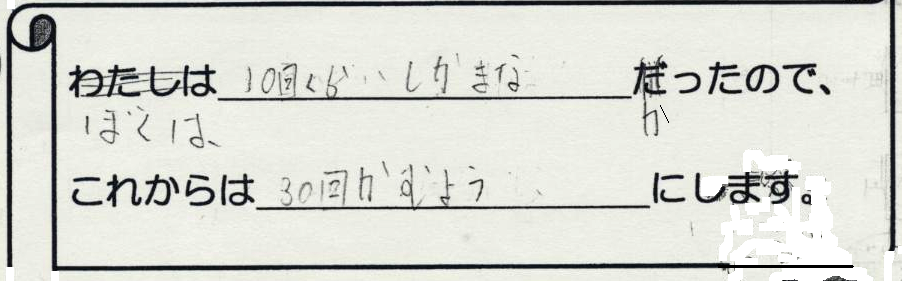 わたしは 10回ぐらいしかまな だったので、
ぼくは、 か
これからは 30回かむよう にします。